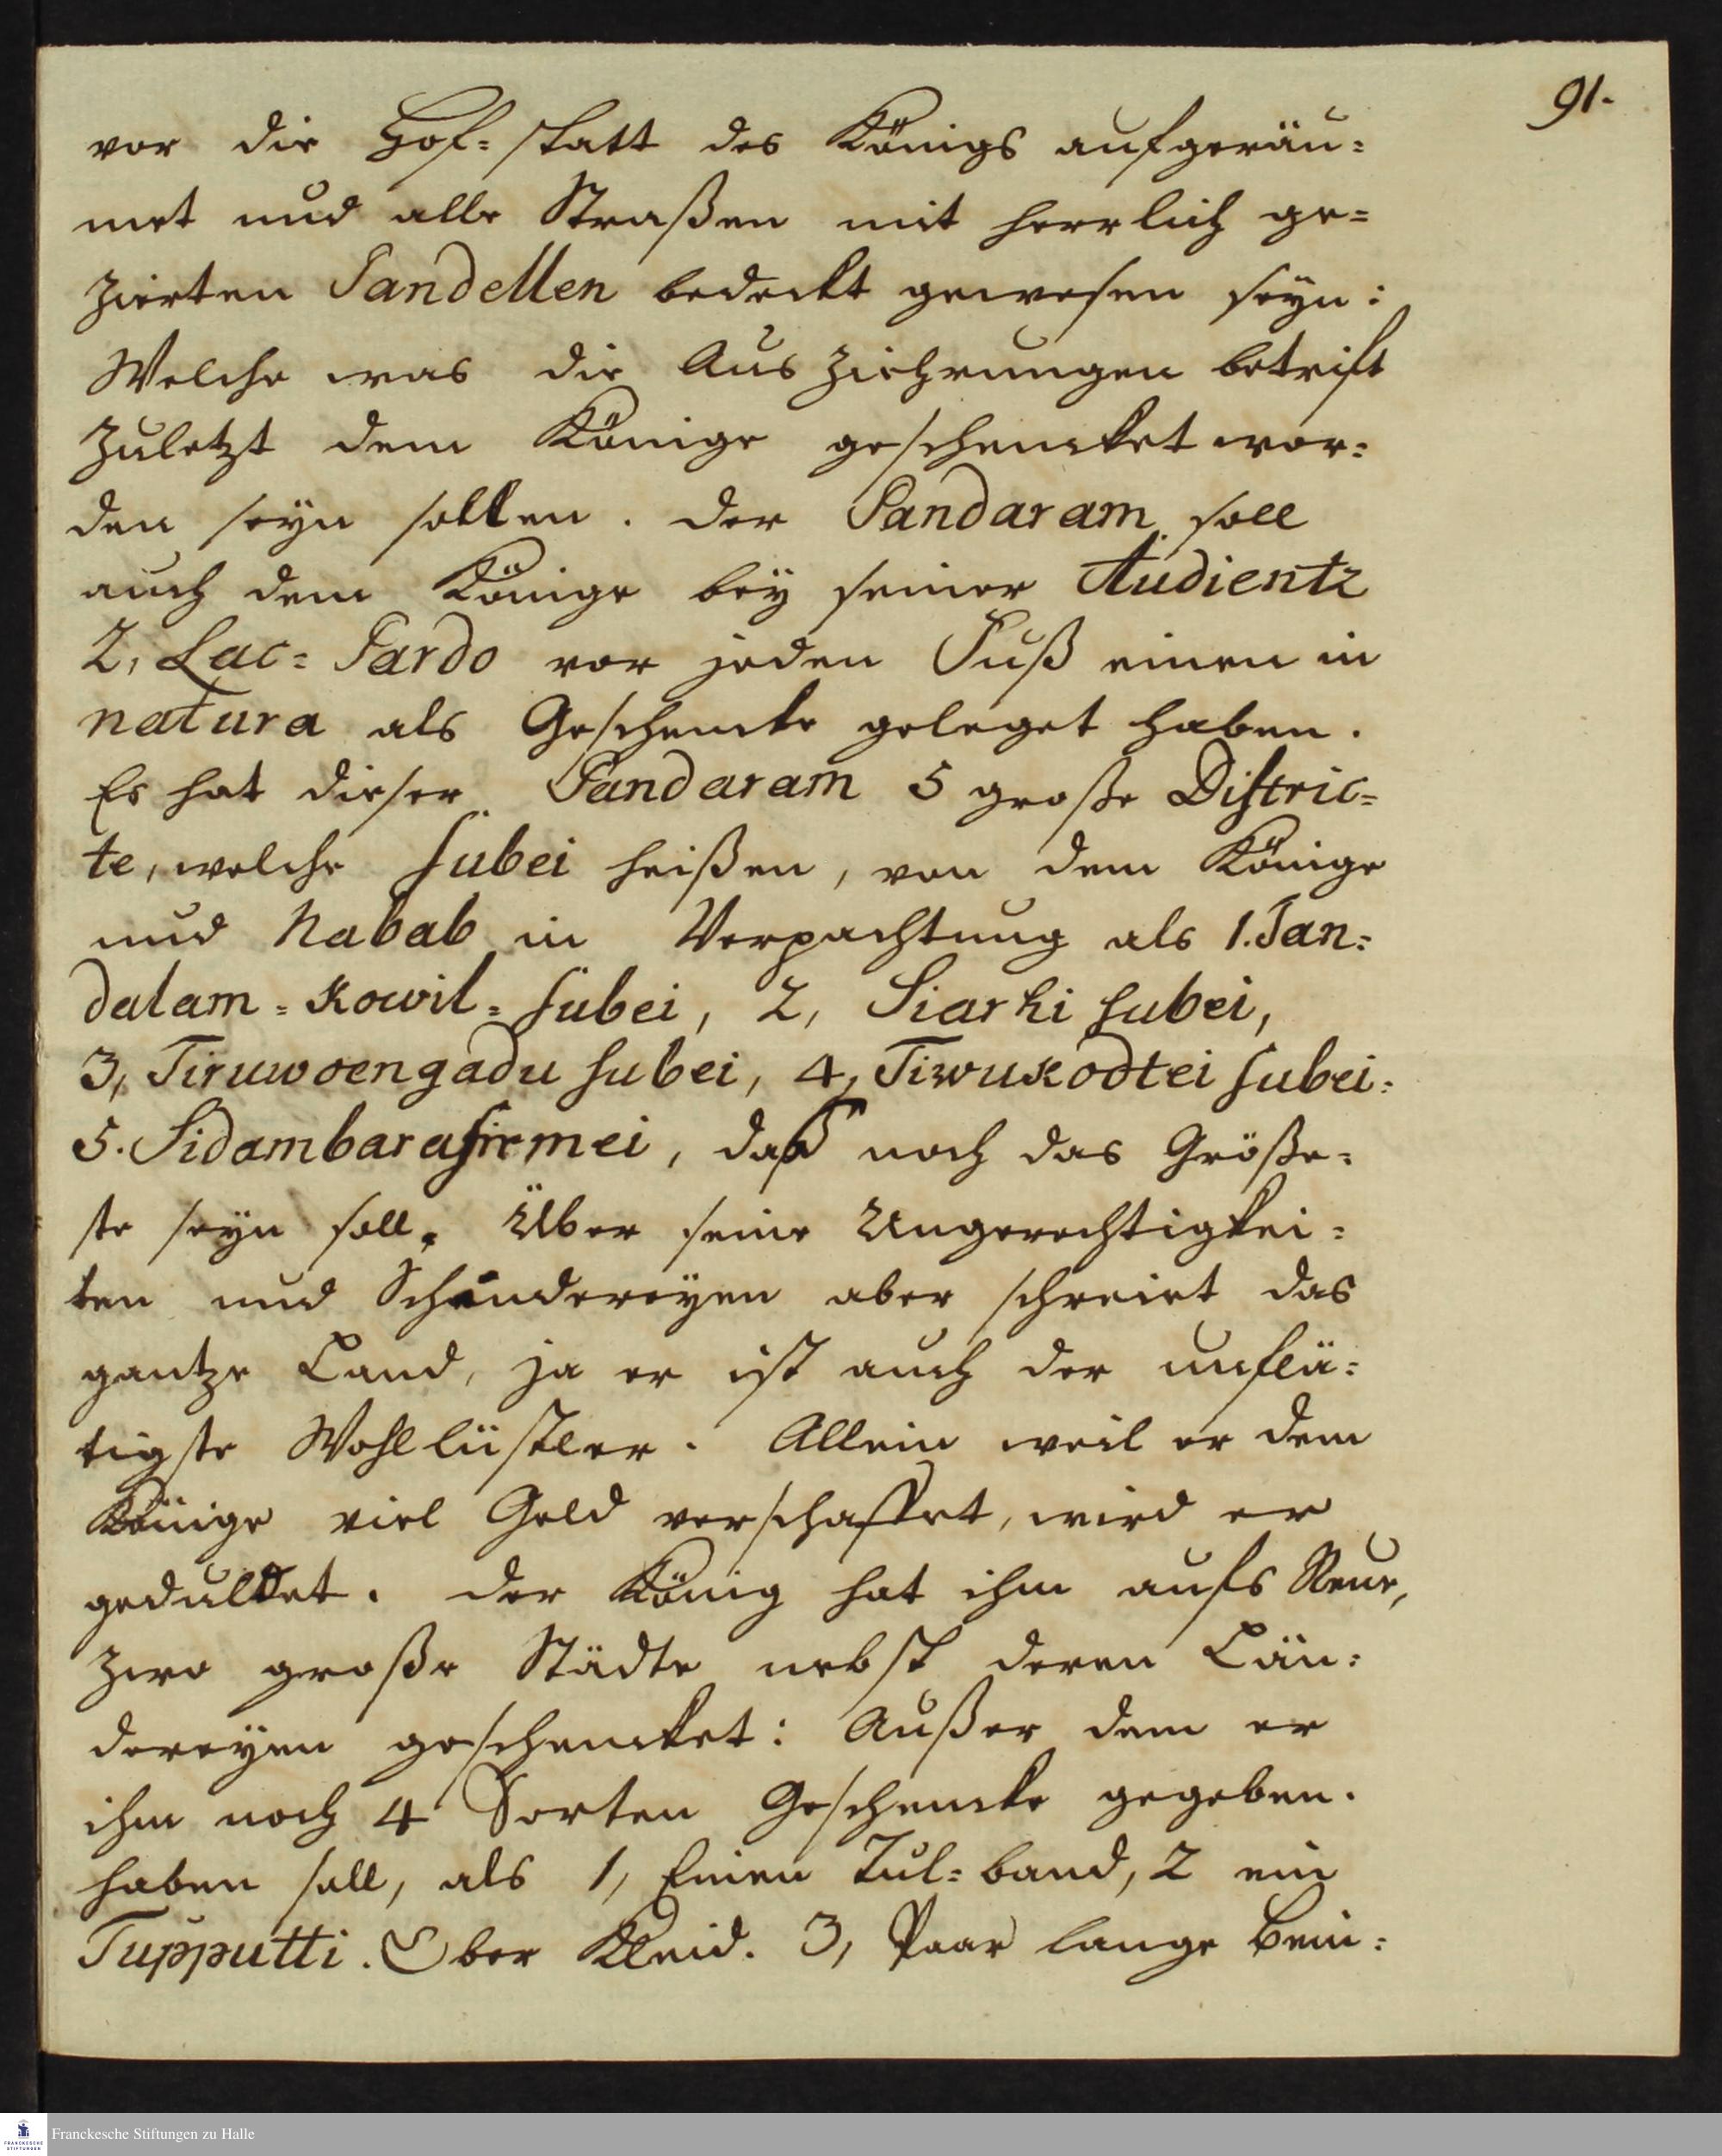 91.
vor die Hof-statt des Königs aufgeräu-
met und alle Straßen mit herrlich ge-
zierten Pandellen bedeckt gewesen seyn:
Welche was die Auszierhungen betrift
zuletzt dem Könige geschencket wor-
den seyn sollen. der Pandaram soll
auch dem Könige bey seiner Audientz
2, Lac-Pardo vor jeden Fuß einen in
natura als Geschencke geleget haben.
Es hat dieser Pandaram 5 große Distric-
te, welche subei heißen, von dem Könige
und Nabab in Verpachtung als 1. Pan-
dalam-Kowil-subei, 2, Siarhi subei,
3, Tiruwoengadu subei, 4, Tiwukodtei subei.
5. Sidambarasirmei, daß noch das Größe-
ste seyn soll. Über seine Ungerechtigkei-
ten und Schändereyen aber schreiet das
gantze Land, ja er ist auch der unflä-
tigste Wohllüstler. Allein weil er dem
Könige viel Geld verschaffet, wird er
geduldet. der König hat ihm aufs Neue,
zwo große Städte nebst deren Län-
dereyen geschencket: Außer dem er
ihm noch 4 Sorten Geschencke gegeben.
haben soll, als 1, Einen Tul-band, 2 ein
Tupputti. Ober Kleid. 3, Paar lange Bein-
Franckesche Stiftungen zu Halle